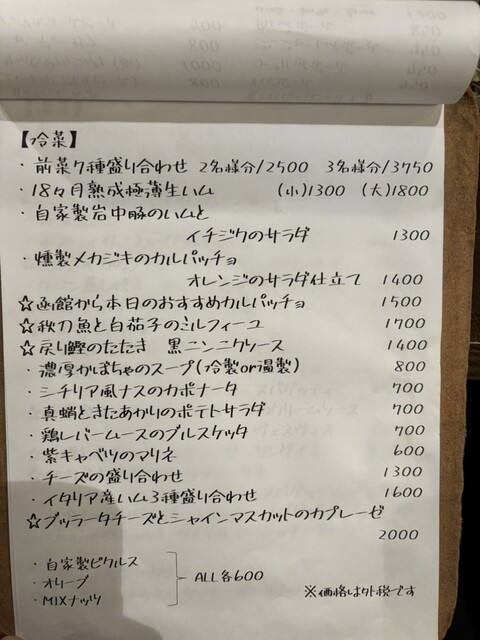 【冷菜】
・前菜7種盛り合わせ 2名様分/2500 3名様分/3750
・18ヶ月熟成極薄生ハム (小)1300 (大)1800
・自家製岩中豚のハムと
イチジクのサラダ 1300
・燻製メカジキのカルパッチョ
オレンジのサラダ仕立て 1400
☆函館から本日のおすすめカルパッチョ 1500
☆秋刀魚と白茄子のミルフィーユ 1700
☆戻り鰹のたたき 黒ニンニクソース 1400
・濃厚かぼちゃのスープ(冷製or温製) 800
・シチリア風ナスのカポナータ 700
・真蛸ときたあかりのポテトサラダ 700
・鶏レバームースのブルスケッタ 700
・紫キャベツのマリネ 600
・チーズの盛り合わせ 1300
・イタリア産ハム3種盛り合わせ 1600
☆ブッラータチーズとシャインマスカットのカプレーゼ
2000
・自家製ピクルス
・オリーブ
・MIXナッツ
ALL各600
※価格は外税です